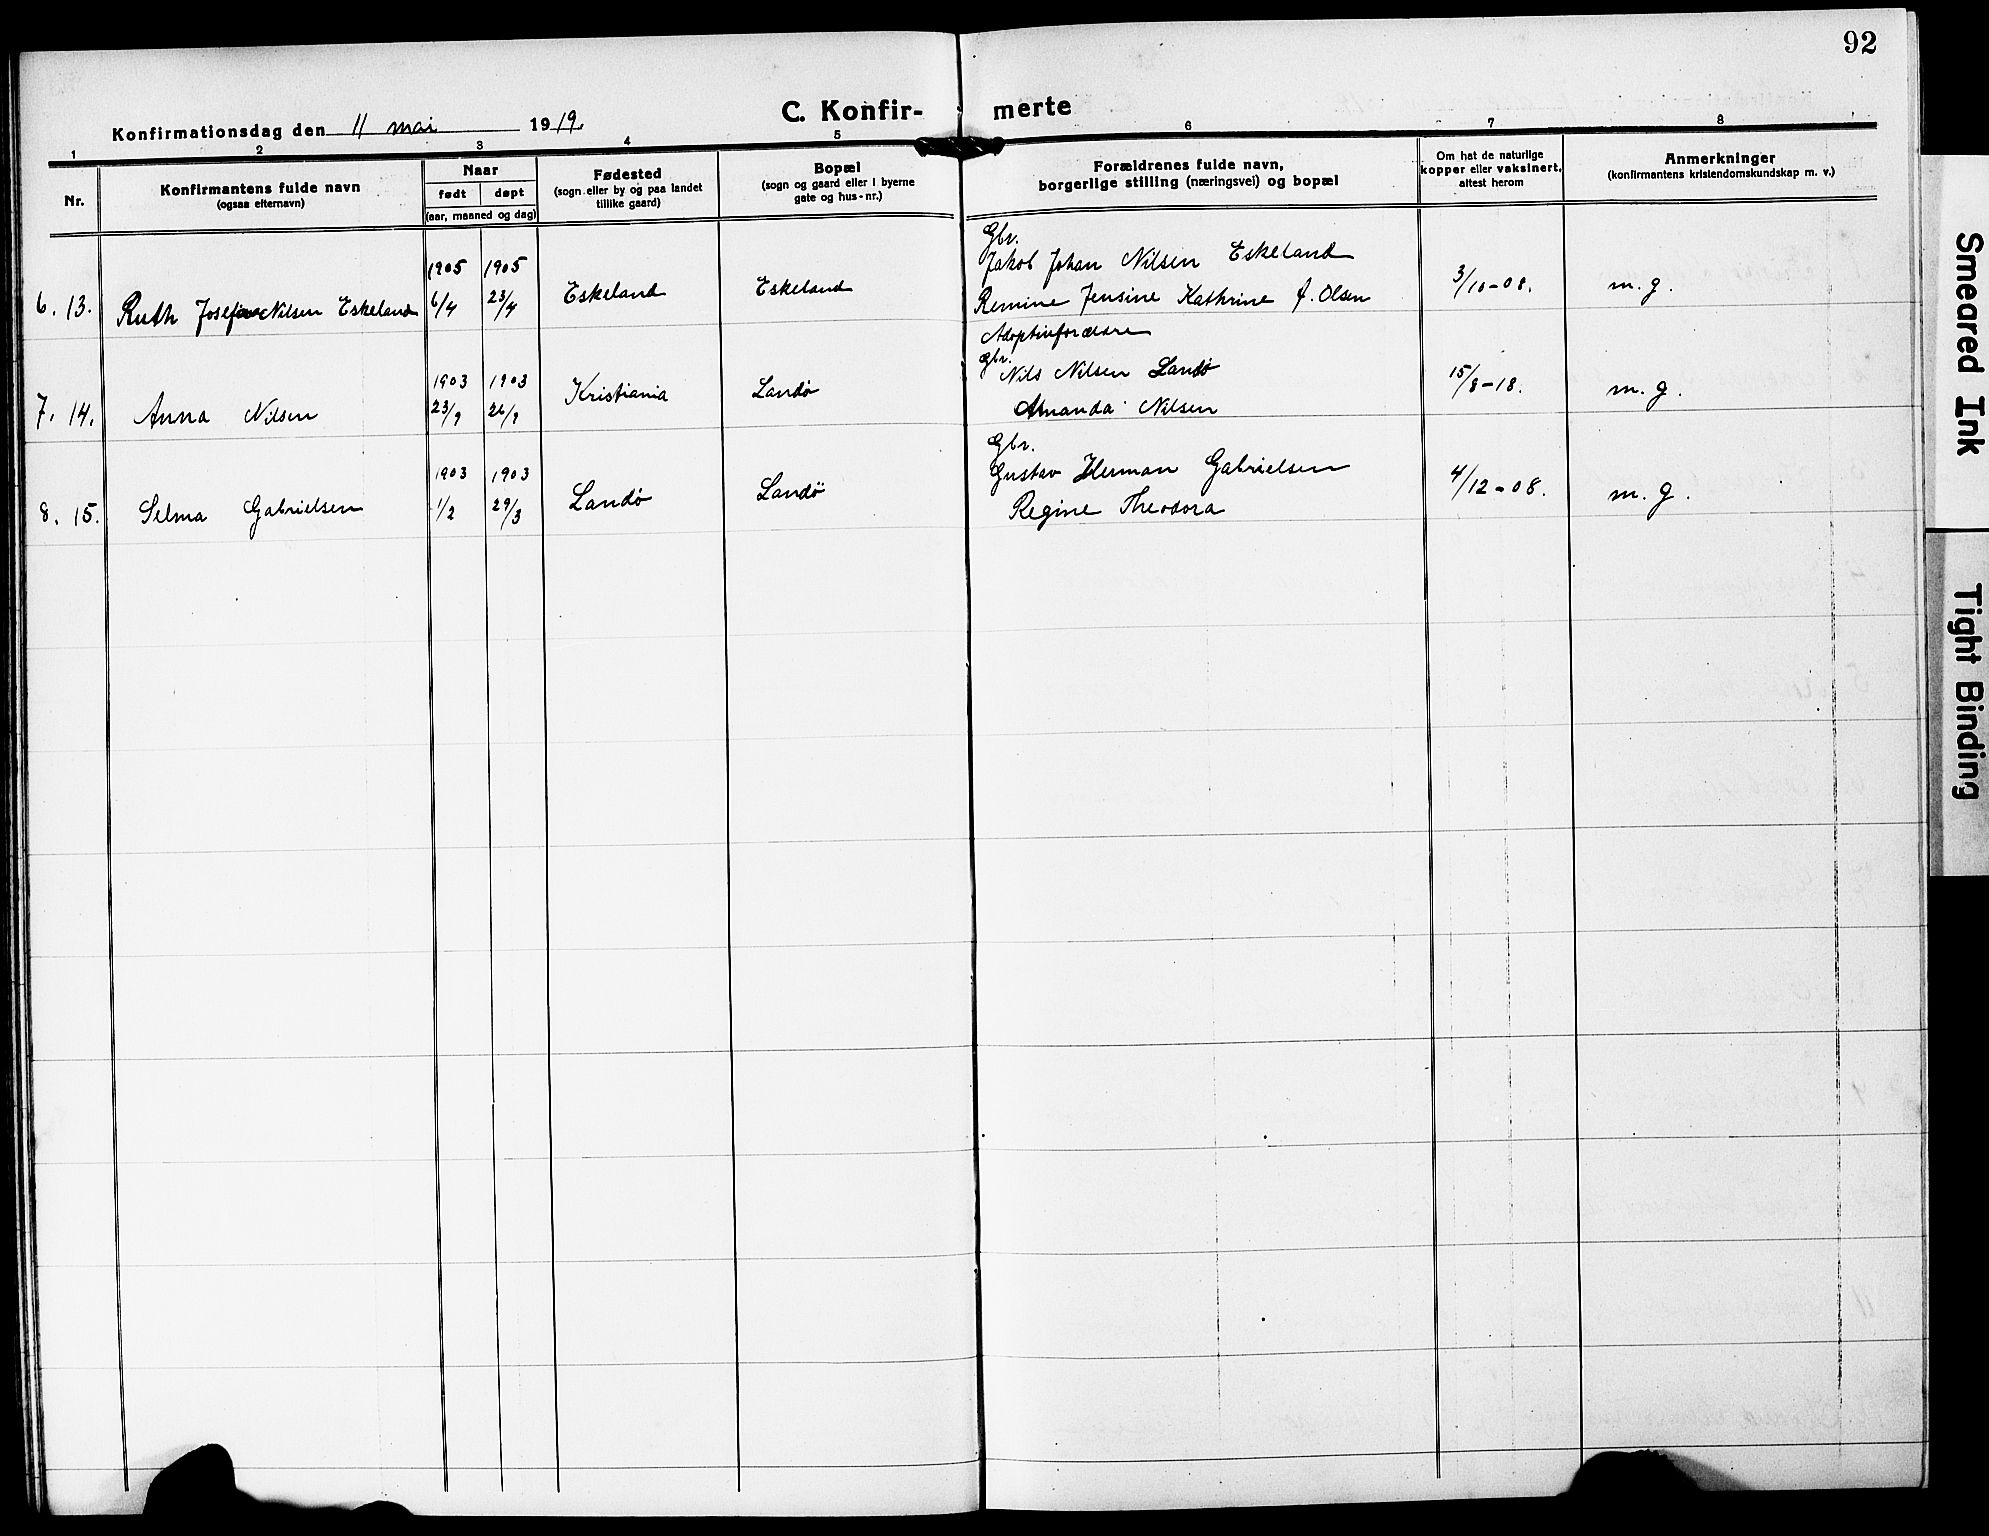 92
C. Konfir- merte
Konfirmationsdag den 11 mai 1919.
1 2 3 4 5 6 7 8
Nr.
Konfirmantens fulde navn
(ogsaa efternavn)
Naar
født døpt
(aar, maaned og dag)
Fødested
(sogn eller by og paa landet
tillike gaard)
Bopæl
(sogn og gaard eller i byerne
gate og hus-nr.)
Forældrenes fulde navn,
borgerlige stilling (næringsvei) og bopæl
Om hat de naturlige
kopper eller vaksinert,
attest herom
Anmerkninger
(konfirmantens kristendomskundskap m. v.)
Gbr.
1905 1905 Jakob Johan Nilsen Eskeland
6. 13. Ruth Josefine Nilsen Eskeland 6/4 23/4 Eskeland Eskeland Remine Jensine Kathrine f. Olsen 3/10-08. m. g.
Adoptivforældre
Gbr.
1903 1903 Nils Nilsen Landø
7. 14. Anna Nilsen 23/9 26/9 Kristiania Landø Amanda Nilsen 15/8-18. m. g.
Gbr.
1903 1903 Gustav Herman Gabrielsen
8. 15. Selma Gabrielsen 1/2 29/3 Landø Landø Regine Theodora 4/12-08. m. g.
Smeared Ink
Tight Binding